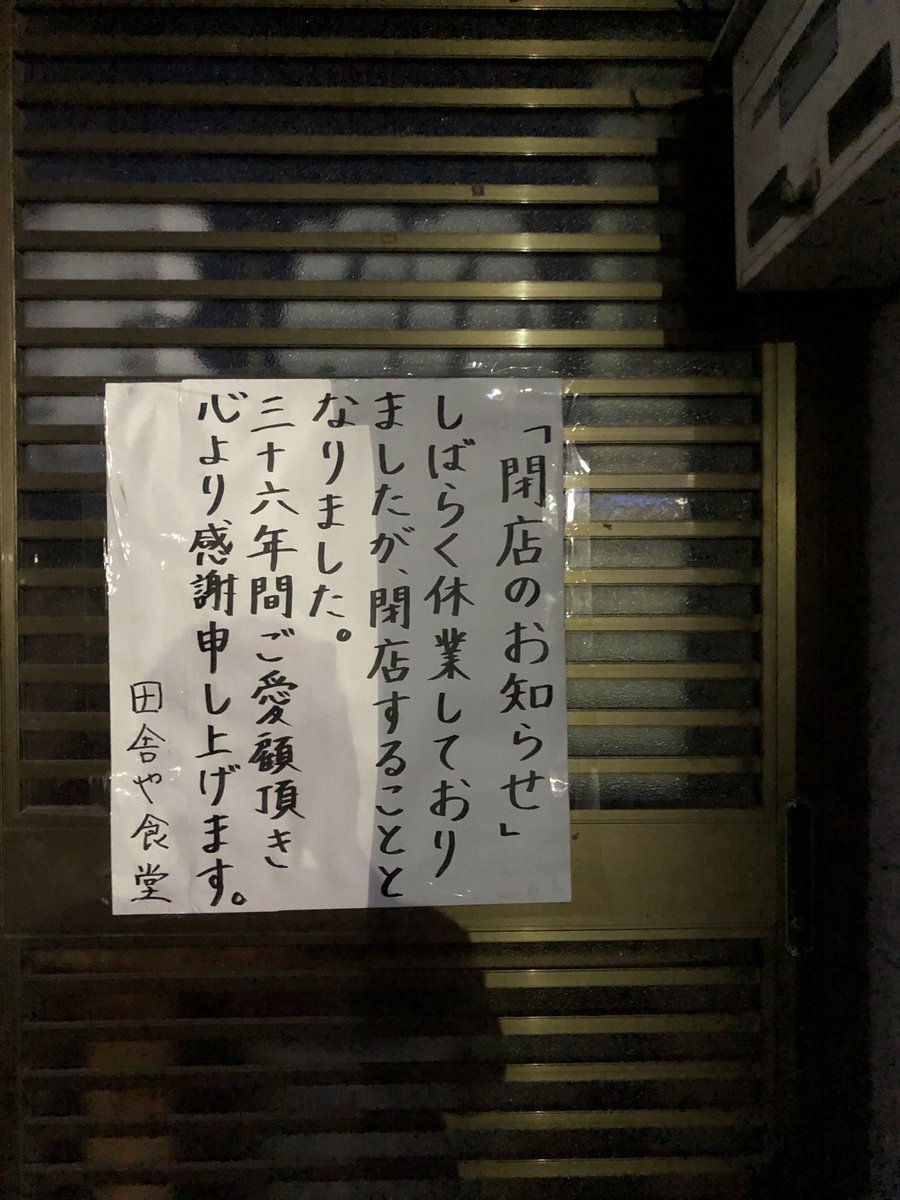 「閉店のお知らせ」
しばらく休業しており
ましたが、閉店することと
なりました。
三十六年間ご愛顧頂き
心より感謝申し上げます。
田舎や食堂